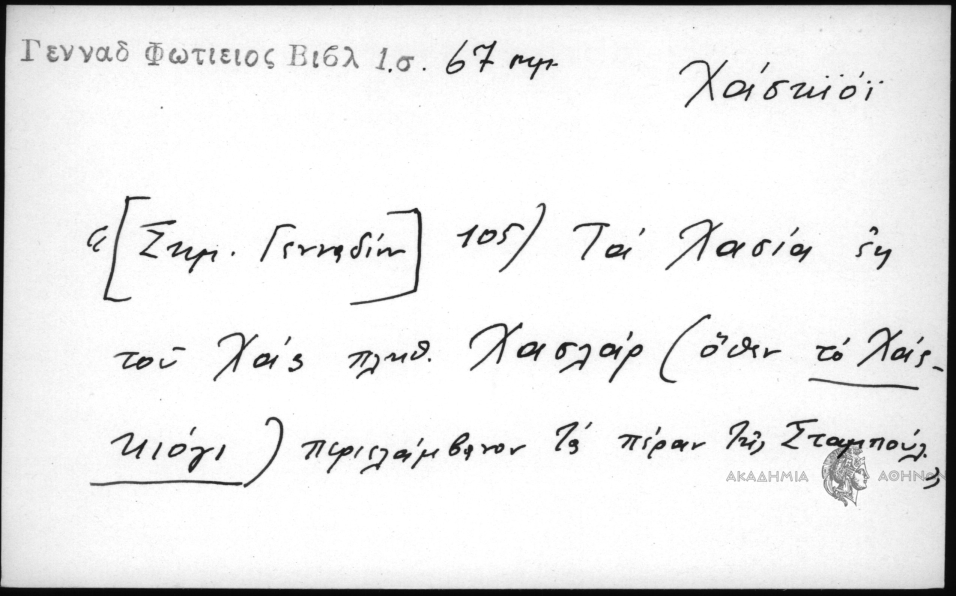 Γενναδ Φωτιειος Βιβλ 1.σ. 67 σημ.
Χάσκϊόϊ
«[Σημ. Γενναδίου] 105) Τά Χασία ἐκ
τοῦ Χάς πληθ. Χασλάρ (ὅθεν τό Χάς-
κιόγι) περιελάμβανον τά πέραν τῆς Σταμπούλ
ΑΚΑΔΗΜΙΑ ΑΘΗΝΩΝ